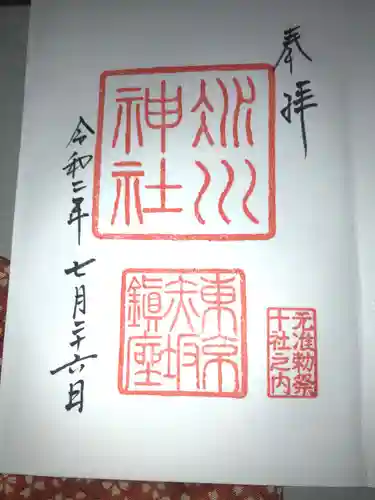 奉拝
氷川
神社
東京
赤坂
鎮座
元准勅祭
十社之内
令和二年七月二十六日